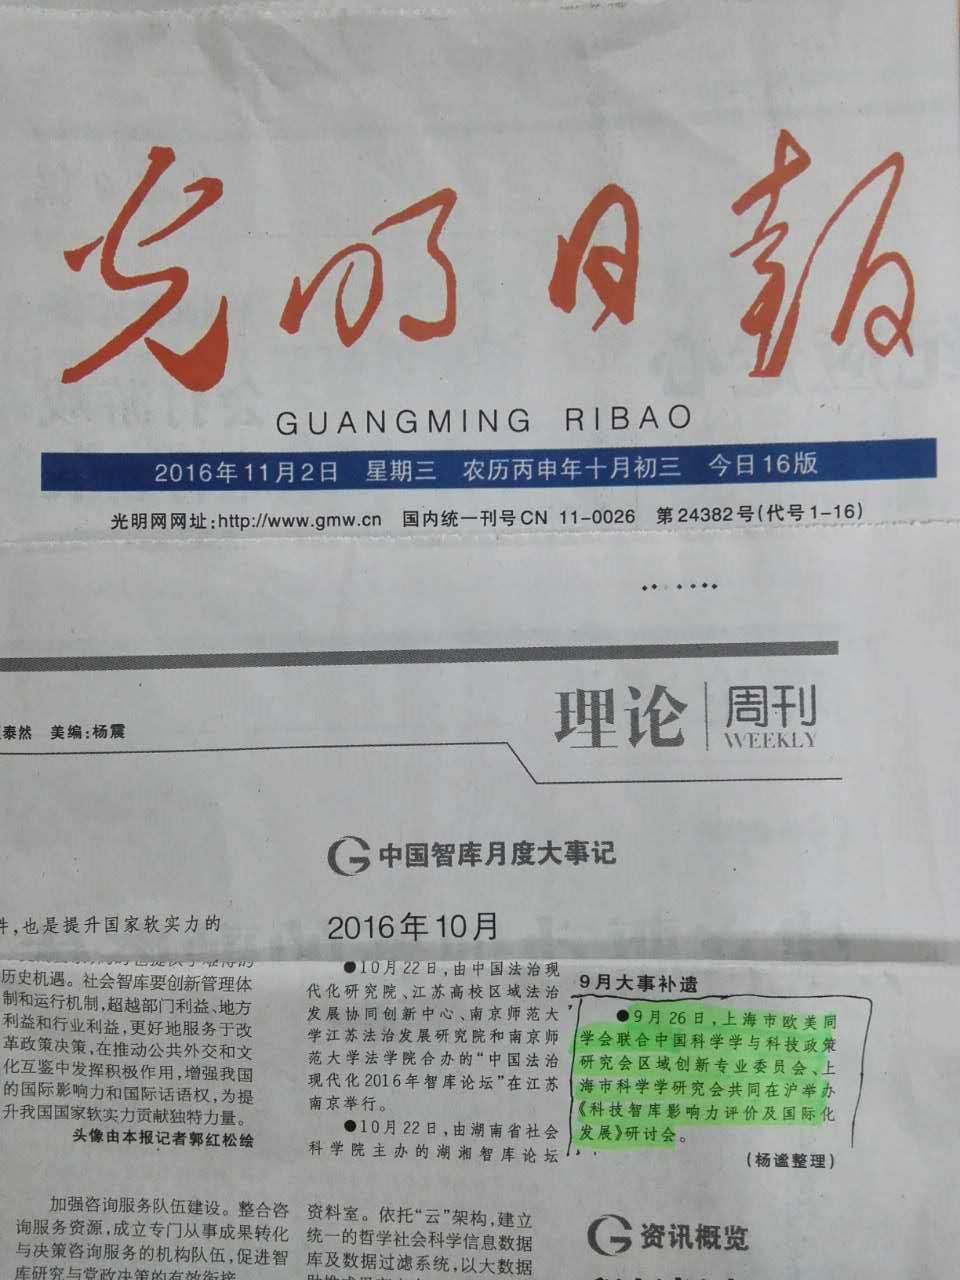 光明日报
GUANGMING RIBAO
2016年11月2日 星期三 农历丙申年十月初三 今日16版
光明网网址:http://www.gmw.cn 国内统一刊号CN 11-0026 第24382号(代号1-16)
泰然 美编:杨震
理论 周刊
WEEKLY
中国智库月度大事记
件,也是提升国家软实力的
历史机遇。社会智库要创新管理体
制和运行机制,超越部门利益、地方
利益和行业利益,更好地服务于改
革政策决策,在推动公共外交和文
化互鉴中发挥积极作用,增强我国
的国际影响力和国际话语权,为提
升我国国家软实力贡献独特力量。
头像由本报记者郭红松绘
2016年10月
●10月22日,由中国法治现
代化研究院、江苏高校区域法治
发展协同创新中心、南京师范大
学江苏法治发展研究院和南京师
范大学法学院合办的“中国法治
现代化2016年智库论坛”在江苏
南京举行。
●10月22日,由湖南省社会
科学院主办的湖湘智库论坛
9月大事补遗
●9月26日,上海市欧美同
学会联合中国科学学与科技政策
研究会区域创新专业委员会、上
海市科学学研究会共同在沪举办
《科技智库影响力评价及国际化
发展》研讨会。
(杨谧整理)
加强咨询服务队伍建设。整合咨
询服务资源,成立专门从事成果转化
与决策咨询服务的机构队伍,促进智
库研究与党政决策的有效衔接
资料室。依托“云”架构,建立
统一的哲学社会科学信息数据
库及数据过滤系统,以大数据
资讯概览